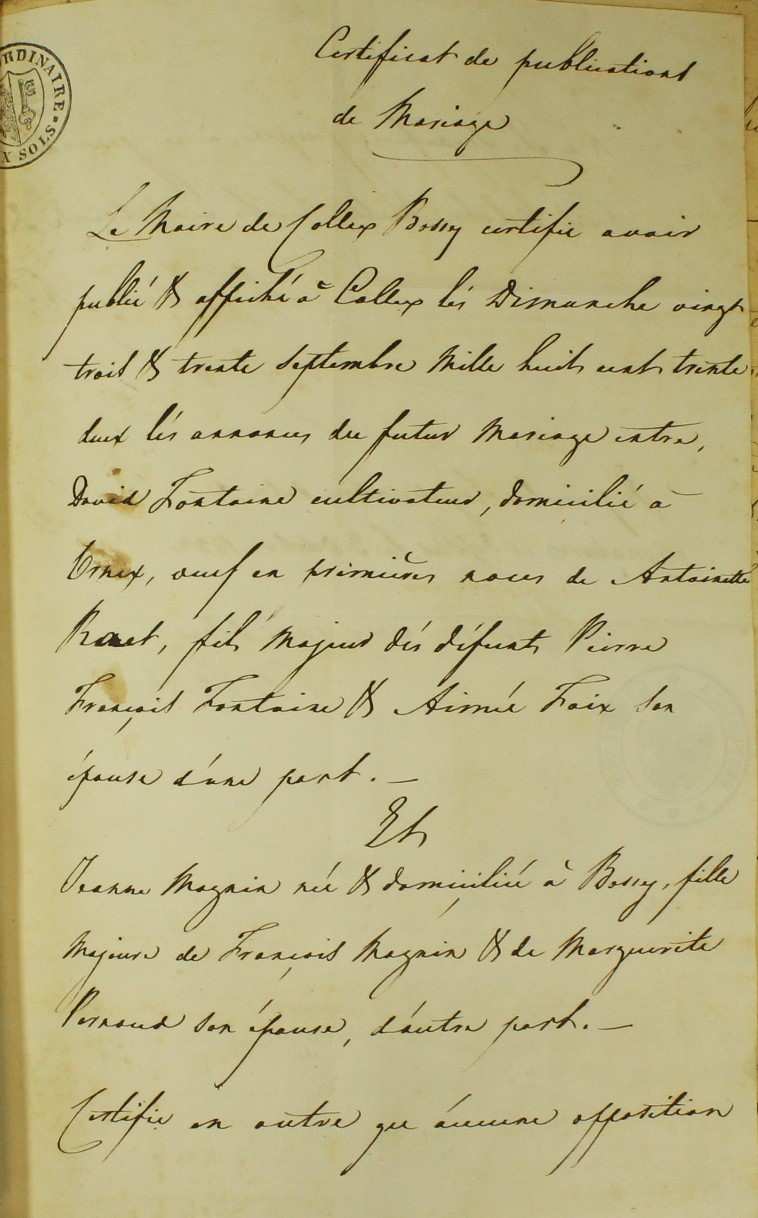 ORDINAIRE
X SOLS
Certificat de publications
de Mariage
Le Maire de Collex Bossy certifie avoir
publié & affiché à Collex lés Dimanche vingt
trois & trente Septembre Mille huit cent trente
deux lés annonces du futur Mariage entre,
David Fontaine cultivateur, domicilié à
Ornex, veuf en prémières noces de Antoinette
fils Majeur dés défunts Pierre
François Fontaine & Aimée Foix son
épouse d'une part. —
Et
Jeanne Magnin née & domiciliée à Bossy, fille
Majeure de François Magnin & de Marguerite
Pernoud son épouse, d'autre part. —
Certifie en outre que aucune opposition